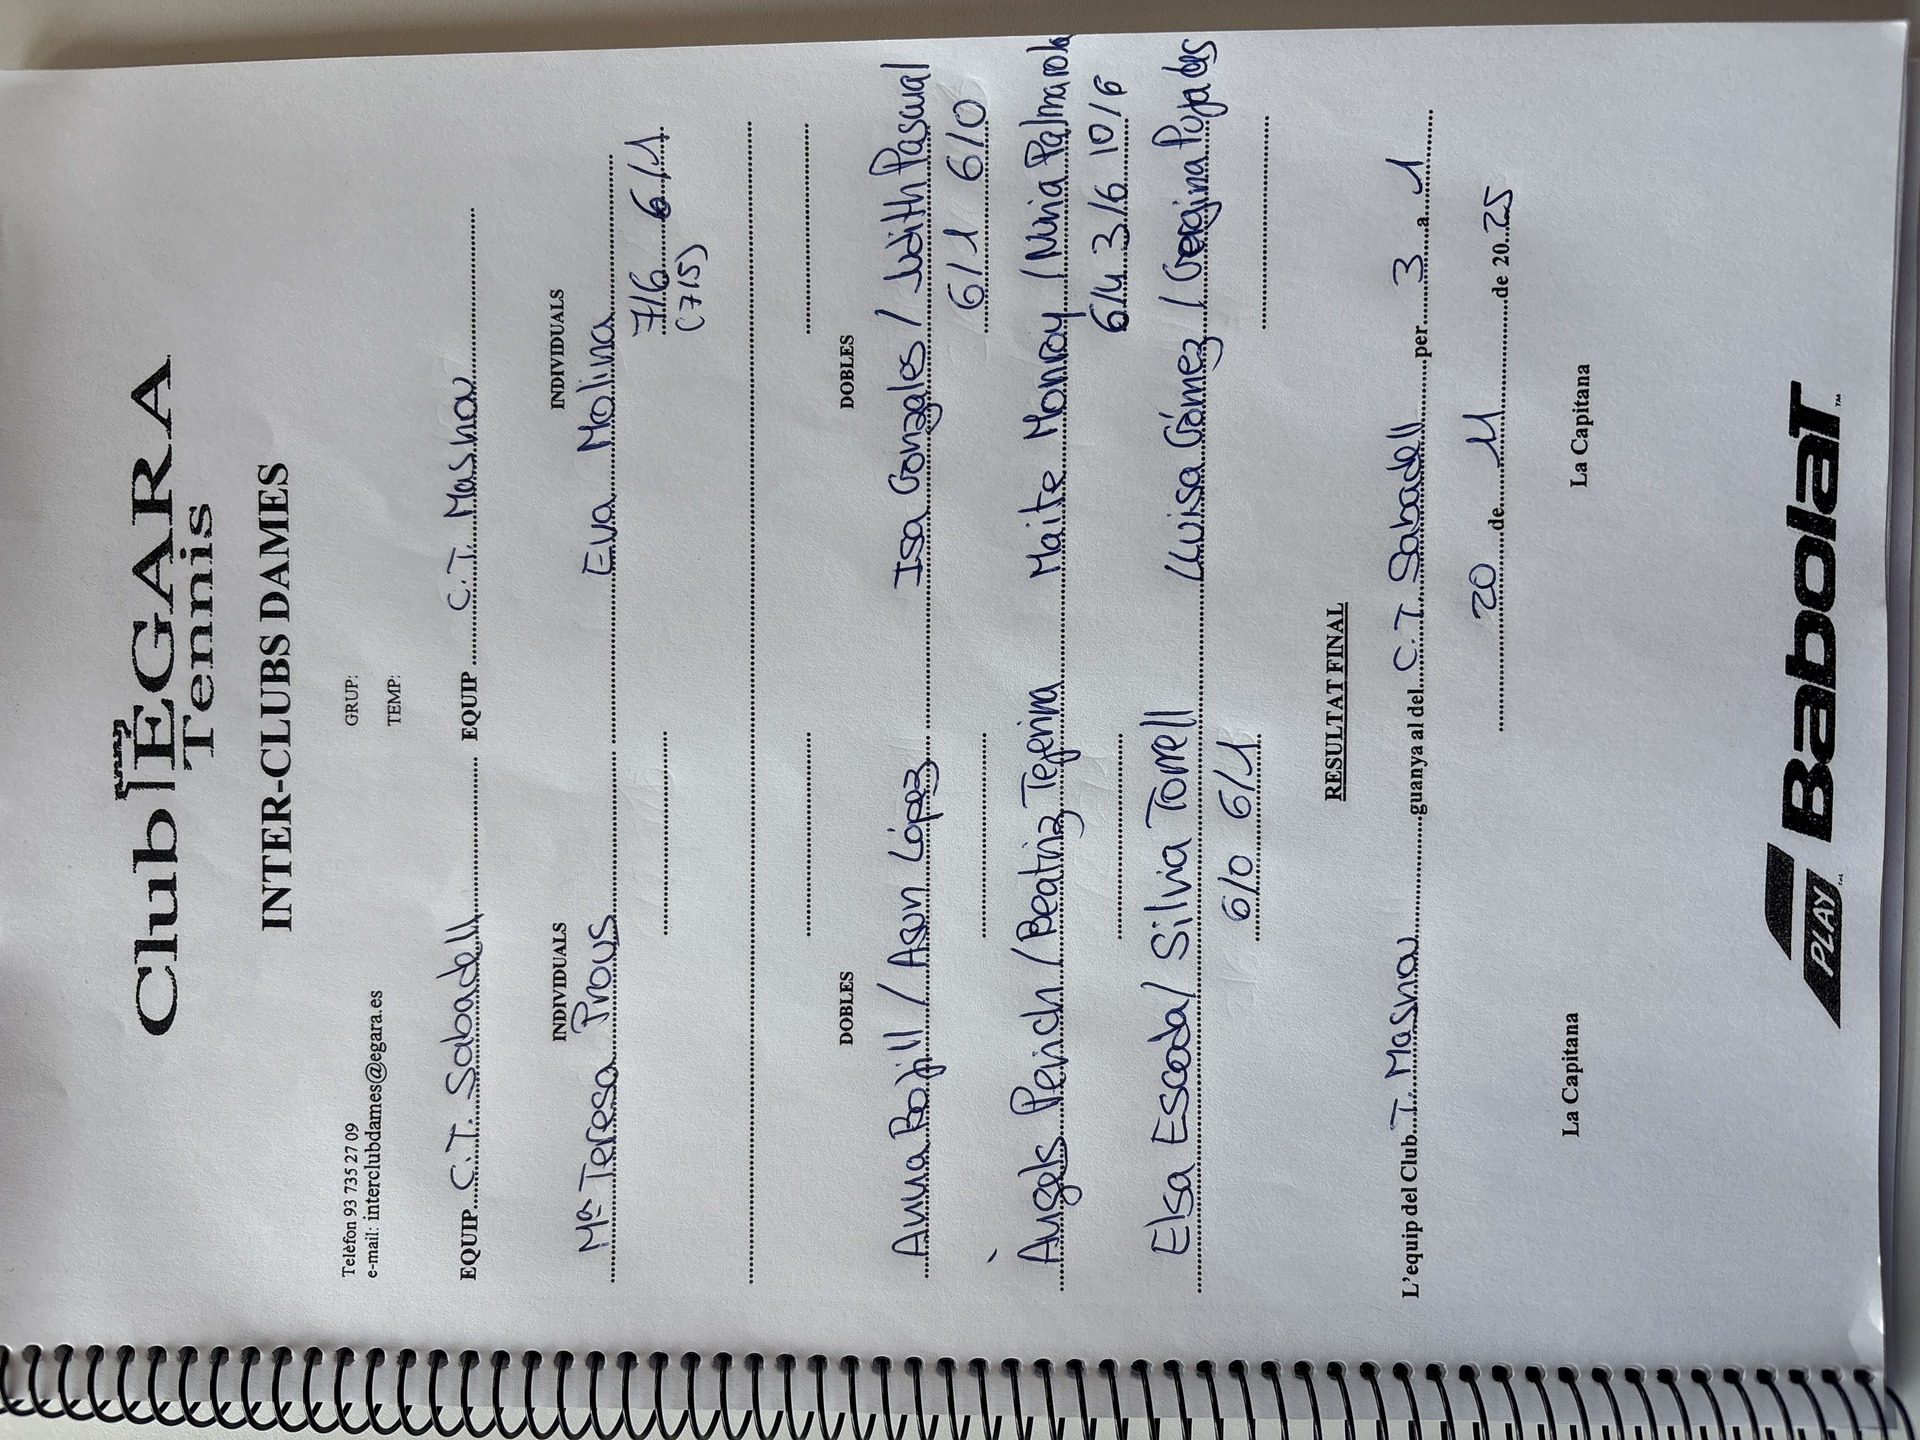 Club EGARA
Tennis
INTER-CLUBS DAMES
Telèfon 93 735 27 09 GRUP:
e-mail: interclubdames@egara.es TEMP:
EQUIP C.T. Sabadell EQUIP C.T. Masnou
INDIVIDUALS INDIVIDUALS
Mª Teresa Prous Eva Molina
7/6 6/1
(7/5)
DOBLES DOBLES
Anna Bofill / Asun López Isa Gonzales / Judith Pascual
6/1 6/0
Àngels Perich / Beatriz Tejerina Maite Monroy / Núria Palmarola
6/4 3/6 10/6
Elsa Escoda / Silvia Torrell Lluisa Gómez / Georgina Pujades
6/0 6/1
RESULTAT FINAL
L'equip del Club T. Masnou guanya al del C.T. Sabadell per 3 a 1
20 de 11 de 20 25
La Capitana La Capitana
PLAY Babolat